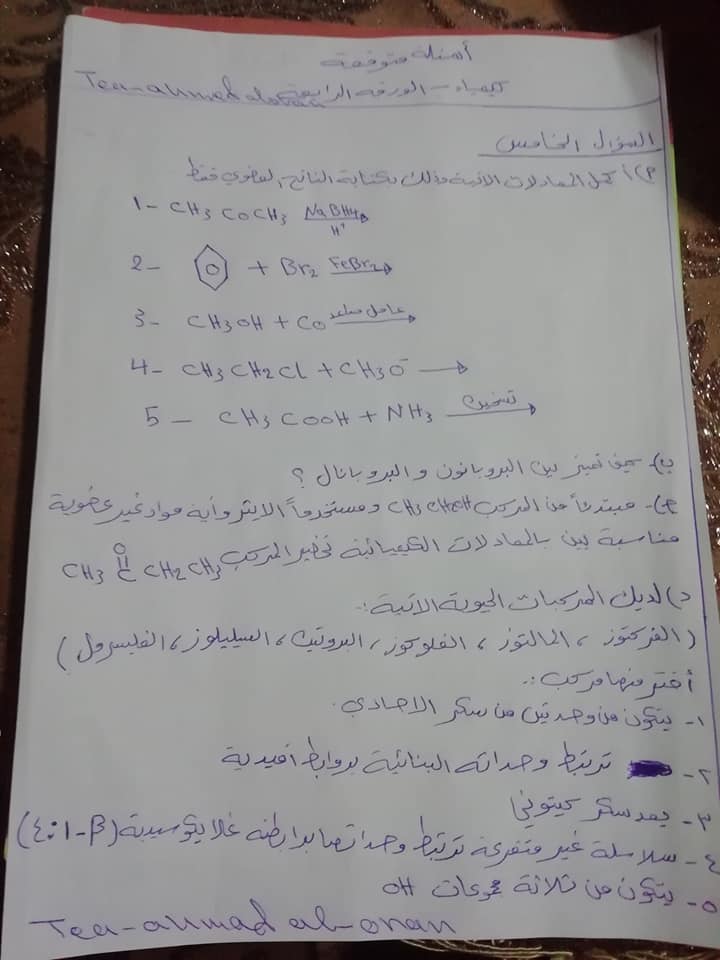 أسئلة متوقعة
كيمياء - الورقة الرابعة Tea-ahmad alonan
السؤال الخامس
م) أكمل المعادلات الآتية وذلك بكتابة الناتج العضوي فقط
1- CH3COCH3 NaBH4 H+
2- + Br2 FeBr2
3- CH3OH + CO عامل مساعد
4- CH3CH2Cl + CH3O-
5- CH3COOH + NH3 تسخين
ب)- كيف تميز بين البروبانون و البروبانال ؟
ج)- مبتدئاً من المركب CH3CH2OH ومستخدماً الايثر وأية مواد غير عضوية
مناسبة بين بالمعادلات الكيميائية تحضير المركب CH3CCH2CH3
O
د) لديك المركبات الحيوية الاتية :
( الفركتوز ، المالتوز ، الغلوكوز ، البروتين ، السيليلوز ، الغليسرول )
أختر منها مركب :
١- يتكون من وحدتين من سكر الاحادي.
٢- ترتبط وحداته البنائية بروابط أميدية
٣- يعد سكر كيتوني
٤- سلاسلة غير متفرعة ترتبط وحداتها برابطة غلايكوسيدية (β-1:4)
٥- يتكون من ثلاثة مجموعات OH
Tea-ahmad al-onan